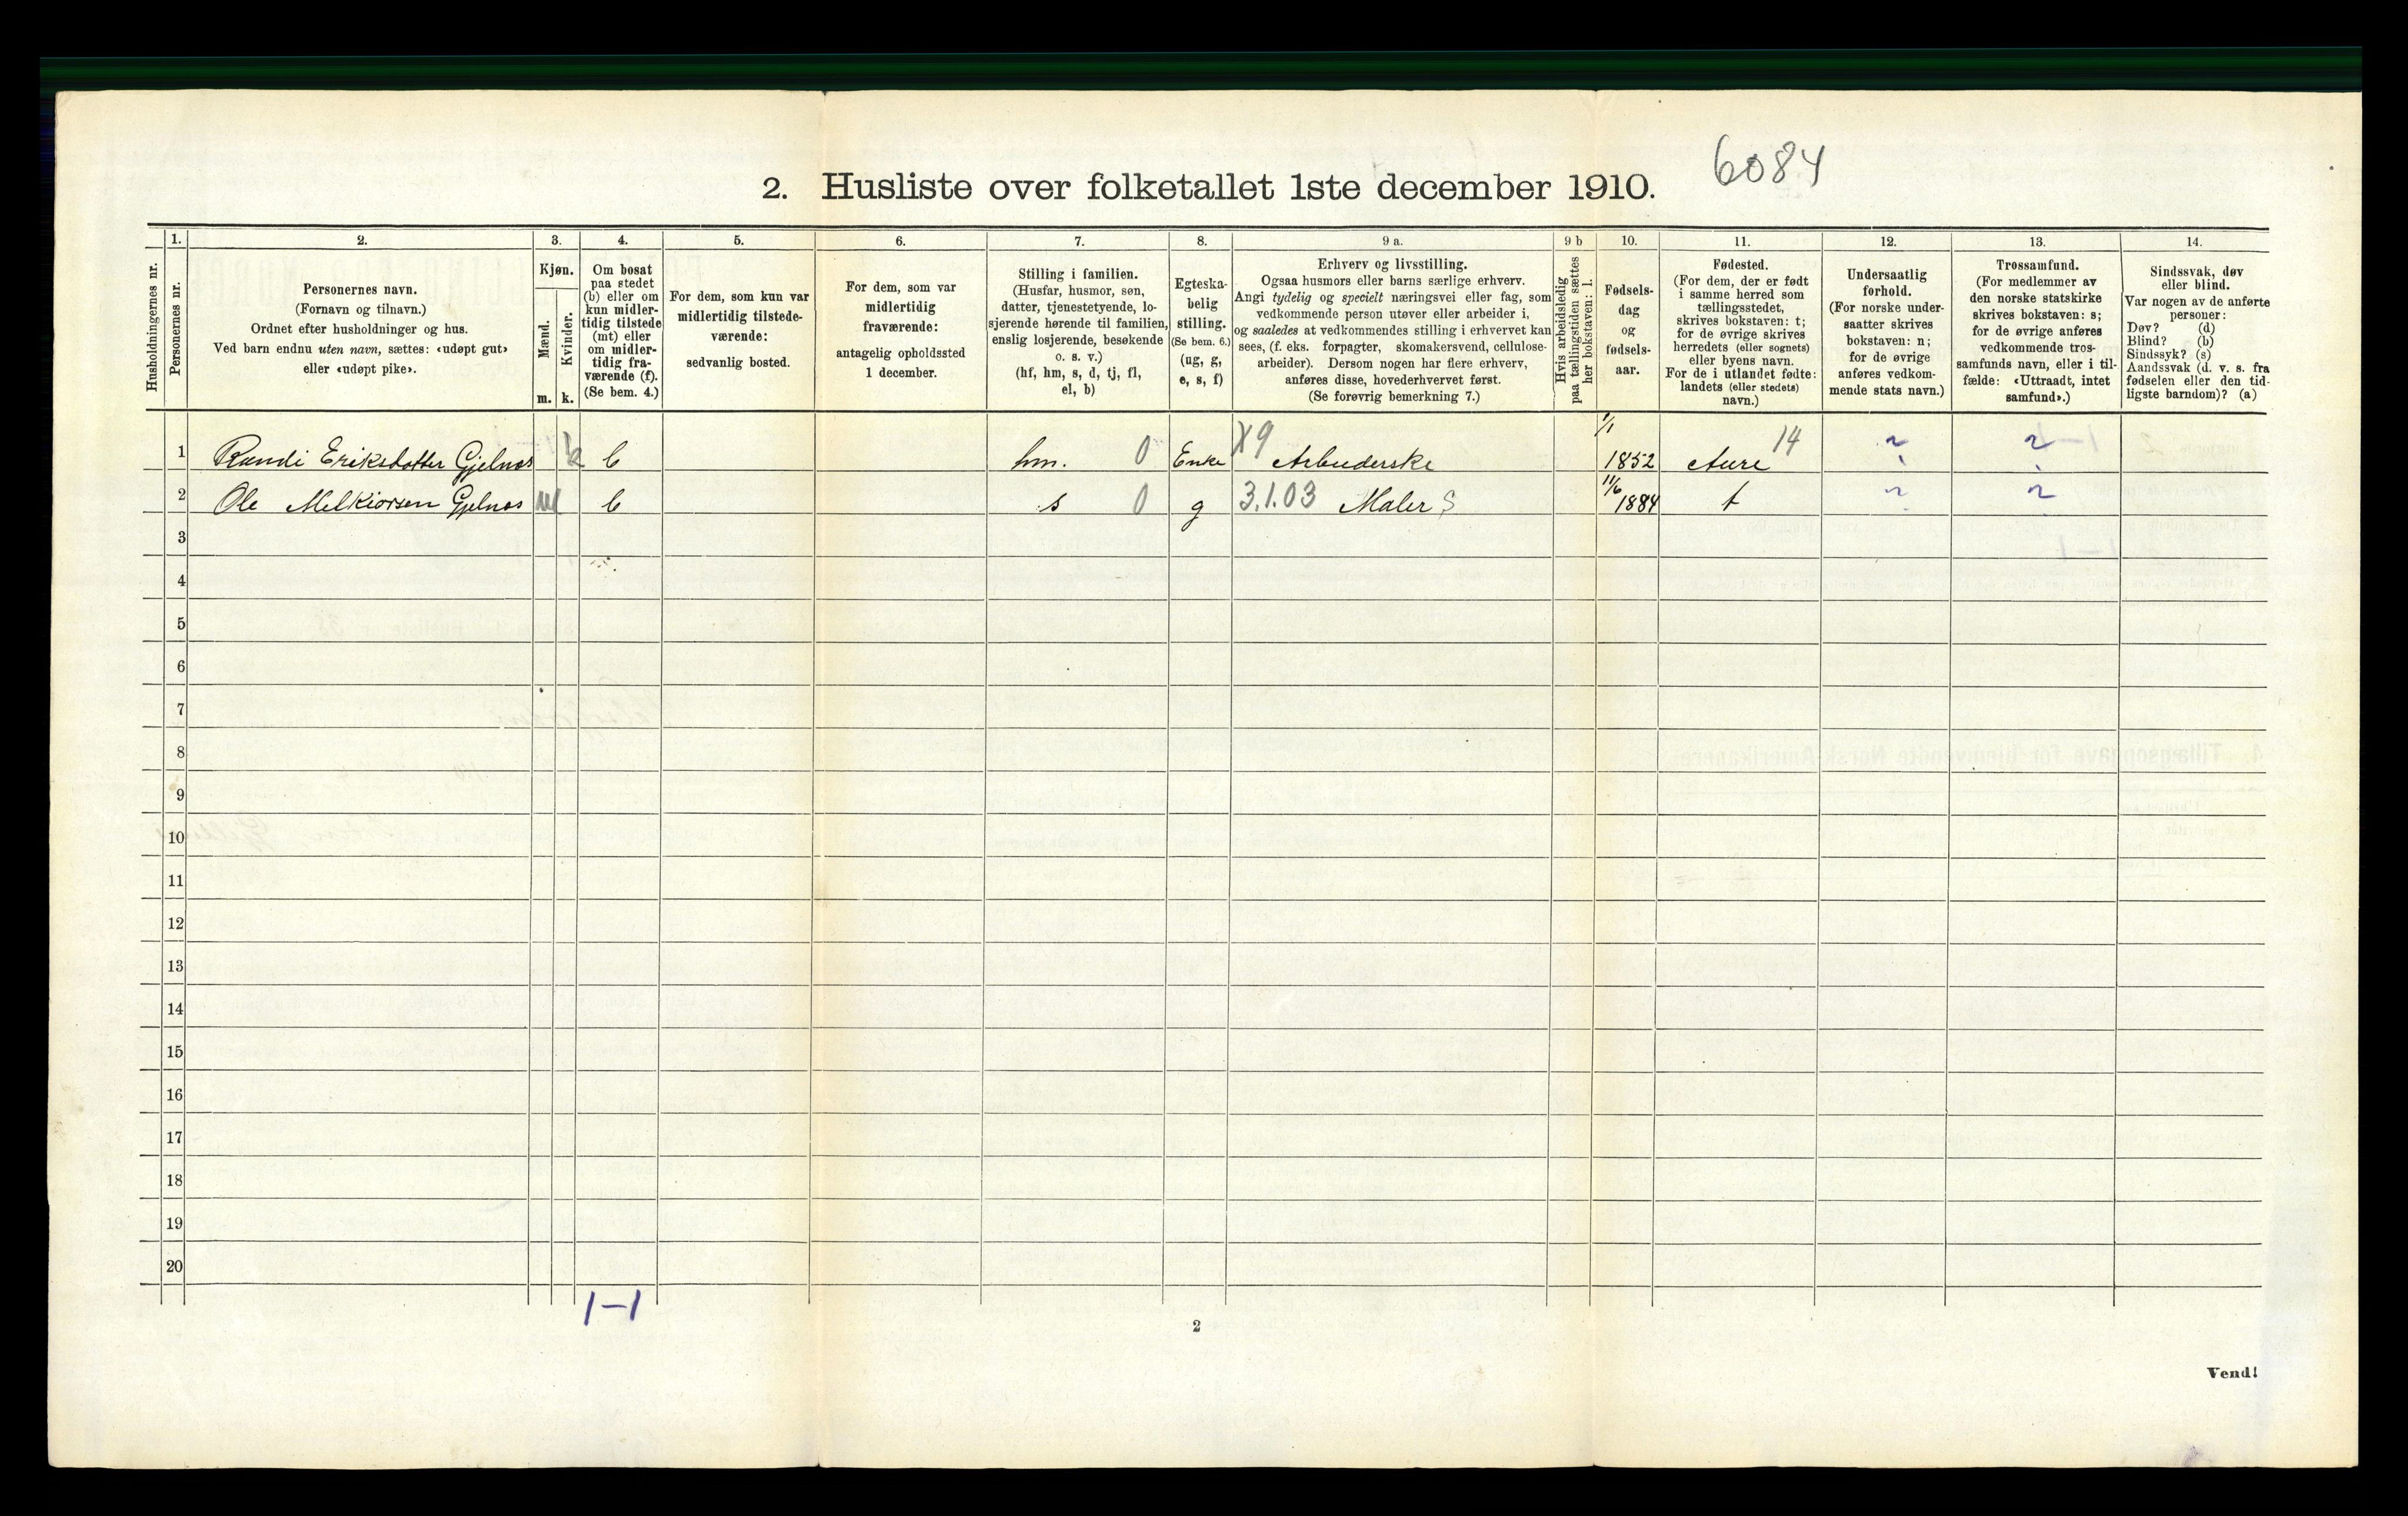 6084
2. Husliste over folketallet 1ste december 1910.
Husholdningernes nr.
1.
Personernes nr.
2.
Personernes navn.
(Fornavn og tilnavn.)
Ordnet efter husholdninger og hus.
Ved barn endnu uten navn, sættes: «udøpt gut»
eller «udøpt pike».
3.
Kjøn.
Mænd.
Kvinder.
m. k.
4.
Om bosat
paa stedet
(b) eller om
kun midler-
tidig tilstede
(mt) eller
om midler-
tidig fra-
værende (f).
(Se bem. 4.)
5.
For dem, som kun var
midlertidig tilstede-
værende:
sedvanlig bosted.
6.
For dem, som var
midlertidig
fraværende:
antagelig opholdssted
1 december.
7.
Stilling i familien.
(Husfar, husmor, søn,
datter, tjenestetyende, lo-
sjerende hørende til familien,
enslig losjerende, besøkende
o. s. v.)
(hf, hm, s, d, tj, fl,
el, b)
8.
Egteska-
belig
stilling.
(Se bem. 6.)
(ug, g,
e, s, f)
9 a.
Erhverv og livsstilling.
Ogsaa husmors eller barns særlige erhverv.
Angi tydelig og specielt næringsvei eller fag, som
vedkommende person utøver eller arbeider i,
og saaledes at vedkommendes stilling i erhvervet kan
sees, (f. eks. forpagter, skomakersvend, cellulose-
arbeider). Dersom nogen har flere erhverv,
anføres disse, hovederhvervet først.
(Se forøvrig bemerkning 7.)
9 b
Hvis arbeidsledig
paa tællingstiden sættes
her bokstaven: l.
10.
Fødsels-
dag
og
fødsels-
aar.
11.
Fødested.
(For dem, der er født
i samme herred som
tællingsstedet,
skrives bokstaven: t;
for de øvrige skrives
herredets (eller sognets)
eller byens navn.
For de i utlandet fødte:
landets (eller stedets)
navn.)
12.
Undersaatlig
forhold.
(For norske under-
saatter skrives
bokstaven: n;
for de øvrige
anføres vedkom-
mende stats navn.)
13.
Trossamfund.
(For medlemmer av
den norske statskirke
skrives bokstaven: s;
for de øvrige anføres
vedkommende tros-
samfunds navn, eller i til-
fælde: «Uttraadt, intet
samfund».)
14.
Sindssvak, døv
eller blind.
Var nogen av de anførte
personer:
Døv? (d)
Blind? (b)
Sindssyk? (s)
Aandssvak (d. v. s. fra
fødselen eller den tid-
ligste barndom)? (a)
1 Randi Eriksdatter Gjelnes k b hm. 0 Enke X9 Arbuderske 1/1 1852 Aure 14
2 Ole Melkiorsen Gjelnes m b s 0 g 3.1.03 Maler S 11/6 1884 t
3
4
5
6
7
8
9
10
11
12
13
14
15
16
17
18
19
20
1–1
2
Vend!